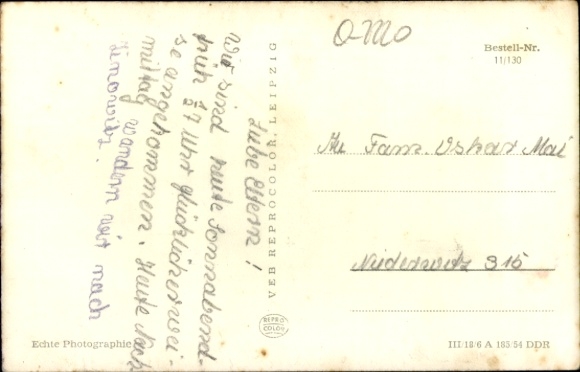 Liebe Eltern!
Wir sind heute Sonnabend-
früh ½7 Uhr glücklicherwei-
se angekommen. Heute Nach
mittag wandern wir nach
Zinowitz.
VEB REPROCOLOR, LEIPZIG
REPRO
COLOR
Echte Photographie
Bestell-Nr.
11/130
An Fam. Oskar Mai
Niederwitz 315
III/18/6 A 185/54 DDR